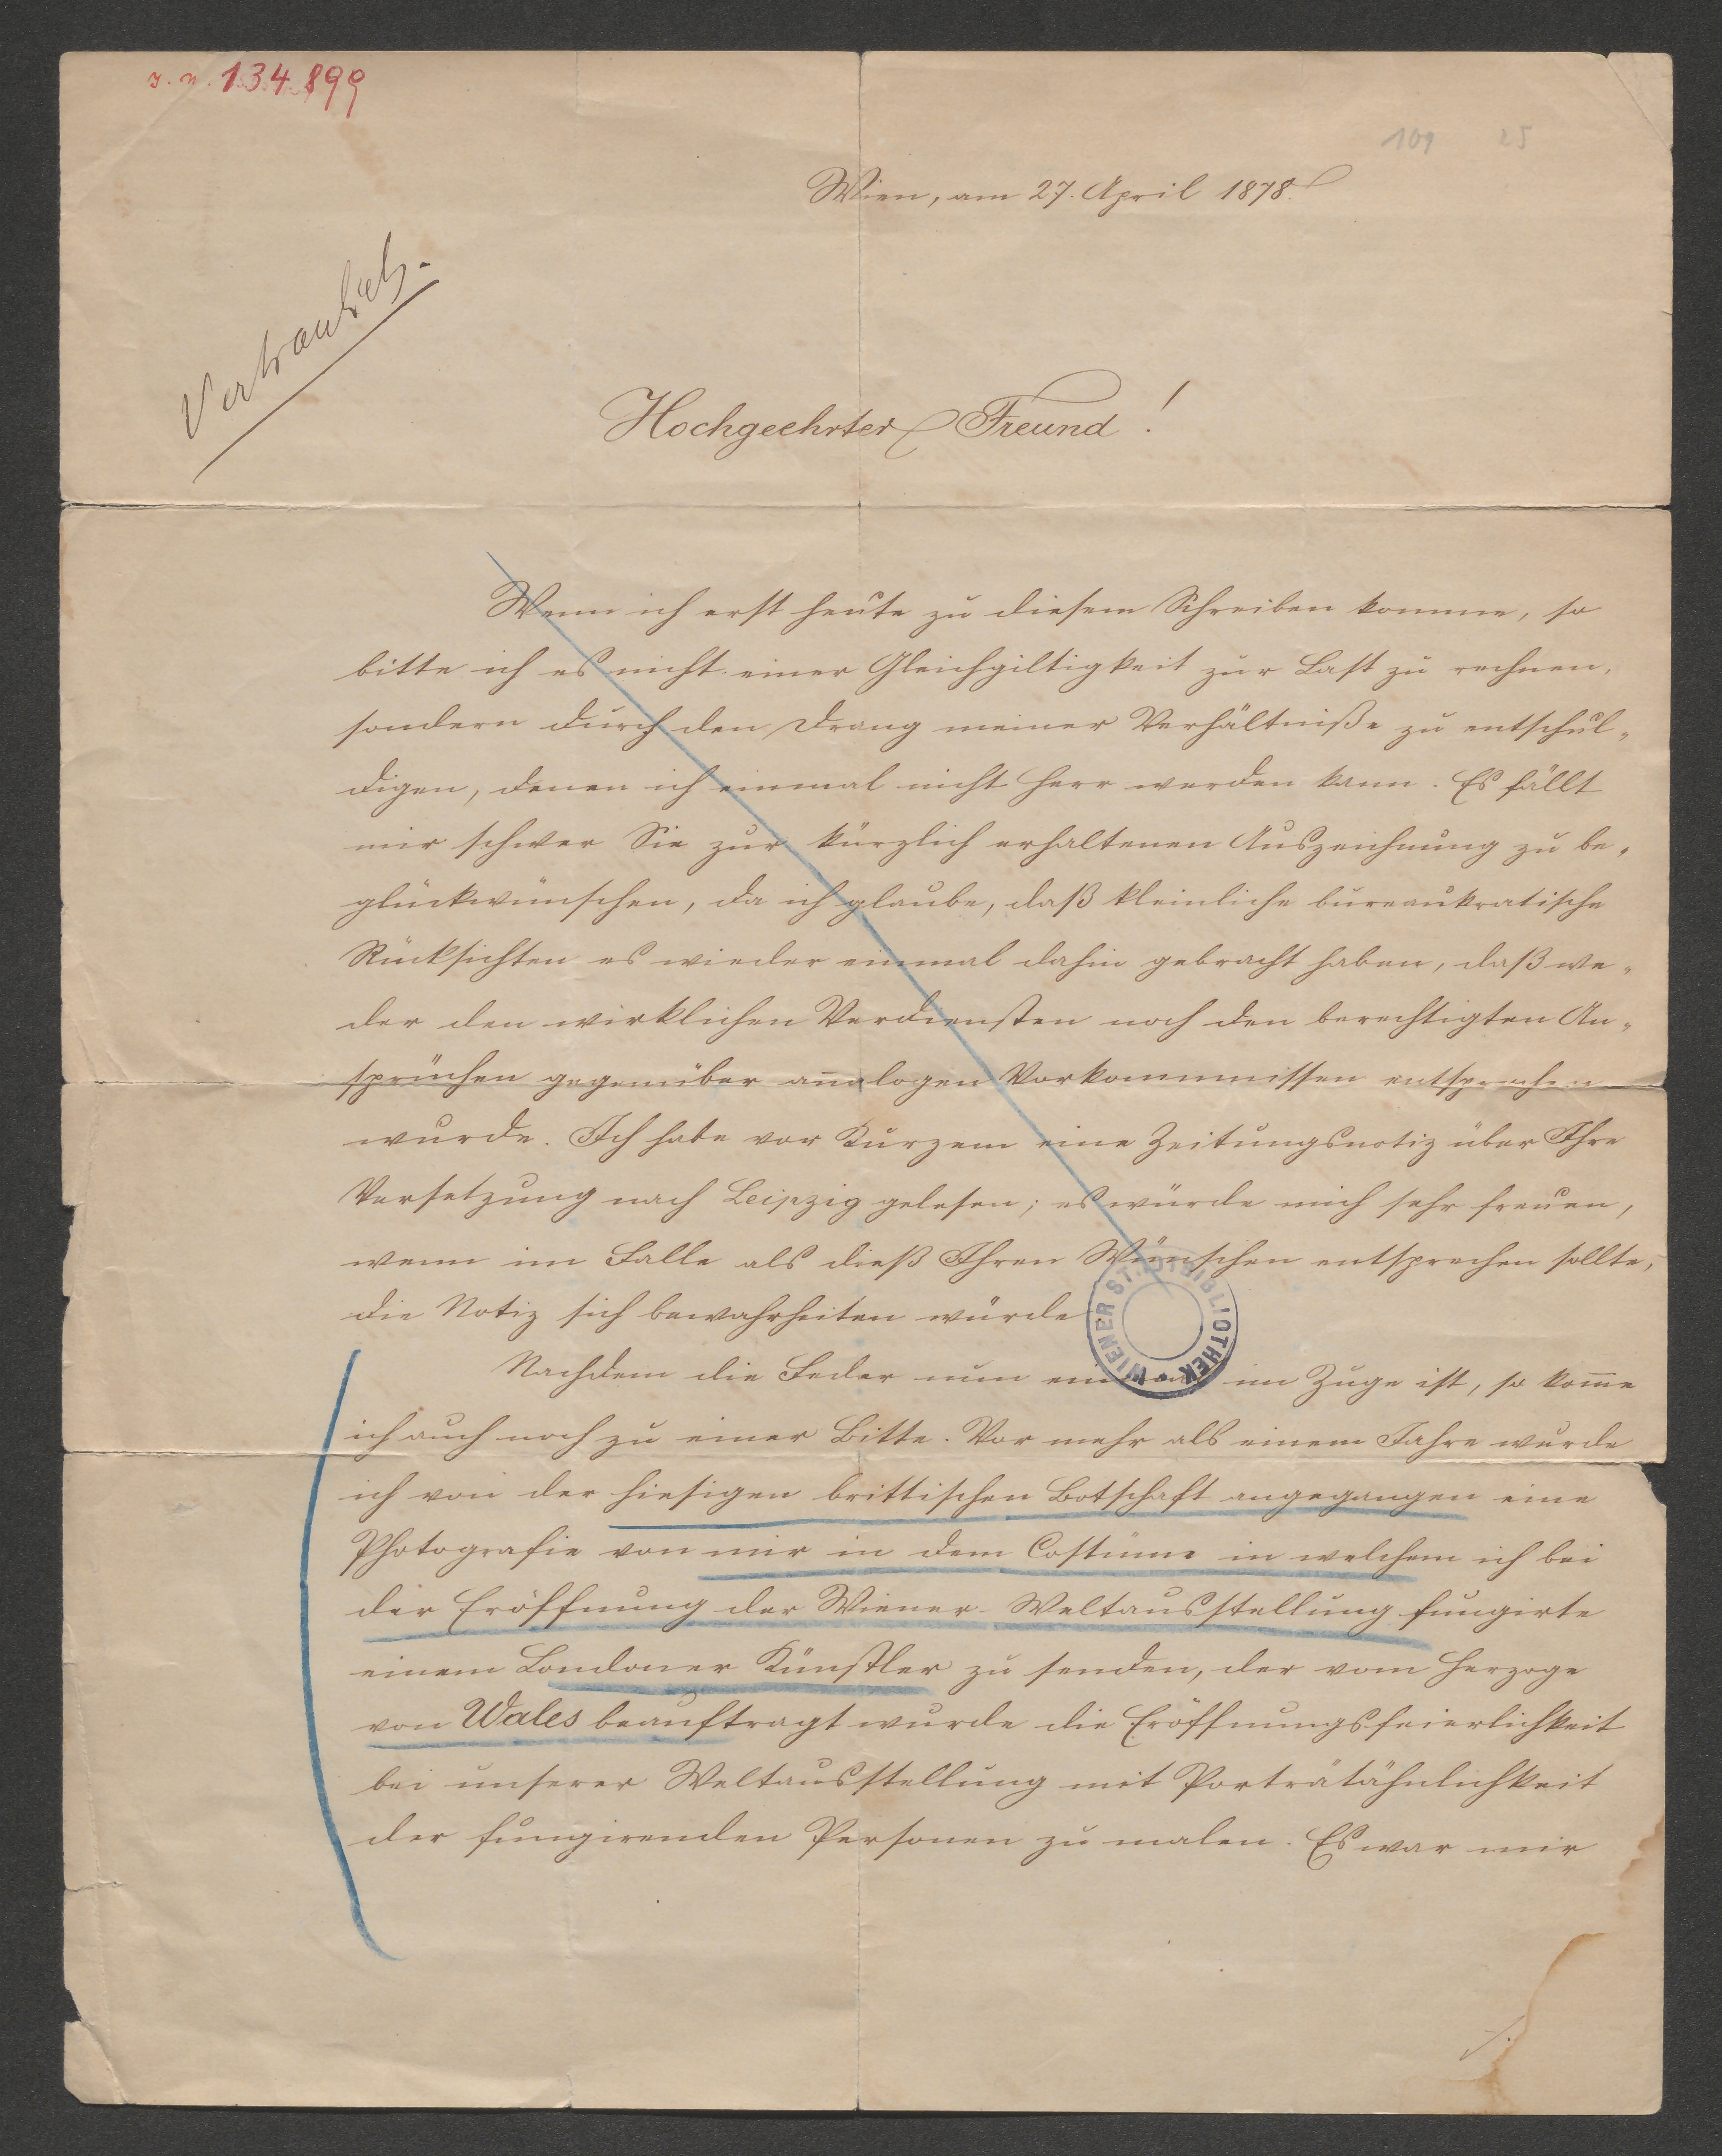 J. N. 134.899
109 25
Wien, am 27. April 1878.
Vertraulich.
Hochgeehrter Freund!
Wenn ich erst heute zu diesem Schreiben komme, so
bitte ich es nicht einer Gleichgiltigkeit zur Last zu rechnen,
sondern durch den Drang meiner Verhältniße zu entschul„
digen, denen ich einmal nicht Herr werden kann. Es fällt
mir schwer Sie zur kürzlich erhaltenen Auszeichnung zu be„
glückwünschen, da ich glaube, daß kleinliche bureaukratische
Rücksichten es wieder einmal dahin gebracht haben, daß we„
der den wirklichen Verdiensten noch den berechtigten An„
sprüchen gegenüber analogen Vorkommnissen entsprochen
wurde. Ich habe vor Kurzem eine Zeitungsnotiz über Ihre
Versetzung nach Leipzig gelesen; es würde mich sehr freuen,
wenn im Falle als dieß Ihren Wünschen entsprechen sollte,
die Notiz sich bewahrheiten würde
WIENER STADTBIBLIOTHEK
Nachdem die Feder nun einmal im Zuge ist, so kom̅e
ich auch noch zu einer Bitte. Vor mehr als einem Jahre wurde
ich von der hiesigen brittischen Botschaft angegangen eine
Photografie von mir in dem Costüme in welchem ich bei
der Eröffnung der Wiener Weltausstellung fungirte
einem Londoner Künstler zu senden, der vom Herzoge
von Wales beauftragt wurde die Eröffnungsfeierlichkeit
bei unserer Weltausstellung mit Porträtähnlichkeit
der fungirenden Personen zu malen. Es war mir
./.